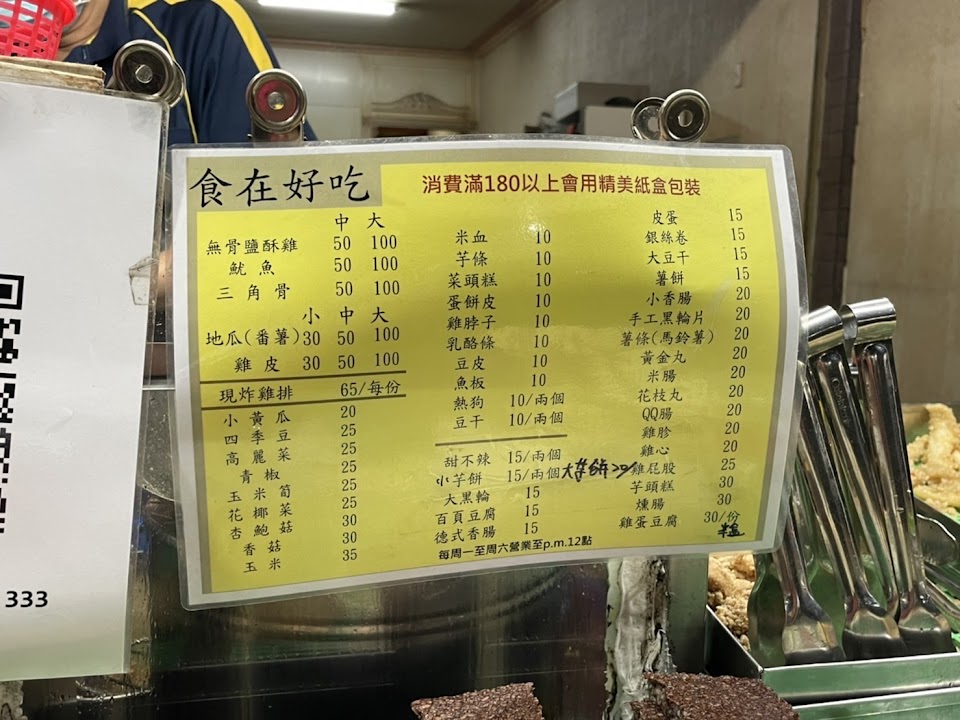 食在好吃
消費滿180以上會用精美紙盒包裝
中 大
無骨鹽酥雞 50 100
魷魚 50 100
三角骨 50 100
小 中 大
地瓜(番薯) 30 50 100
雞皮 30 50 100
現炸雞排 65/每份
小黃瓜 20
四季豆 25
高麗菜 25
青椒 25
玉米筍 25
花椰菜 25
杏鮑菇 30
香菇 30
玉米 35
米血 10
芋條 10
菜頭糕 10
蛋餅皮 10
雞脖子 10
乳酪條 10
豆皮 10
魚板 10
熱狗 10/兩個
豆干 10/兩個
甜不辣 15/兩個
小芋餅 15/兩個 大芋餅20
大黑輪 15
百頁豆腐 15
德式香腸 15
每周一至周六營業至p.m.12點
皮蛋 15
銀絲卷 15
大豆干 15
薯餅 15
小香腸 20
手工黑輪片 20
薯條(馬鈴薯) 20
黃金丸 20
米腸 20
花枝丸 20
QQ腸 20
雞胗 20
雞心 20
雞屁股 25
芋頭糕 30
燻腸 30
雞蛋豆腐 30/份
半盒
333